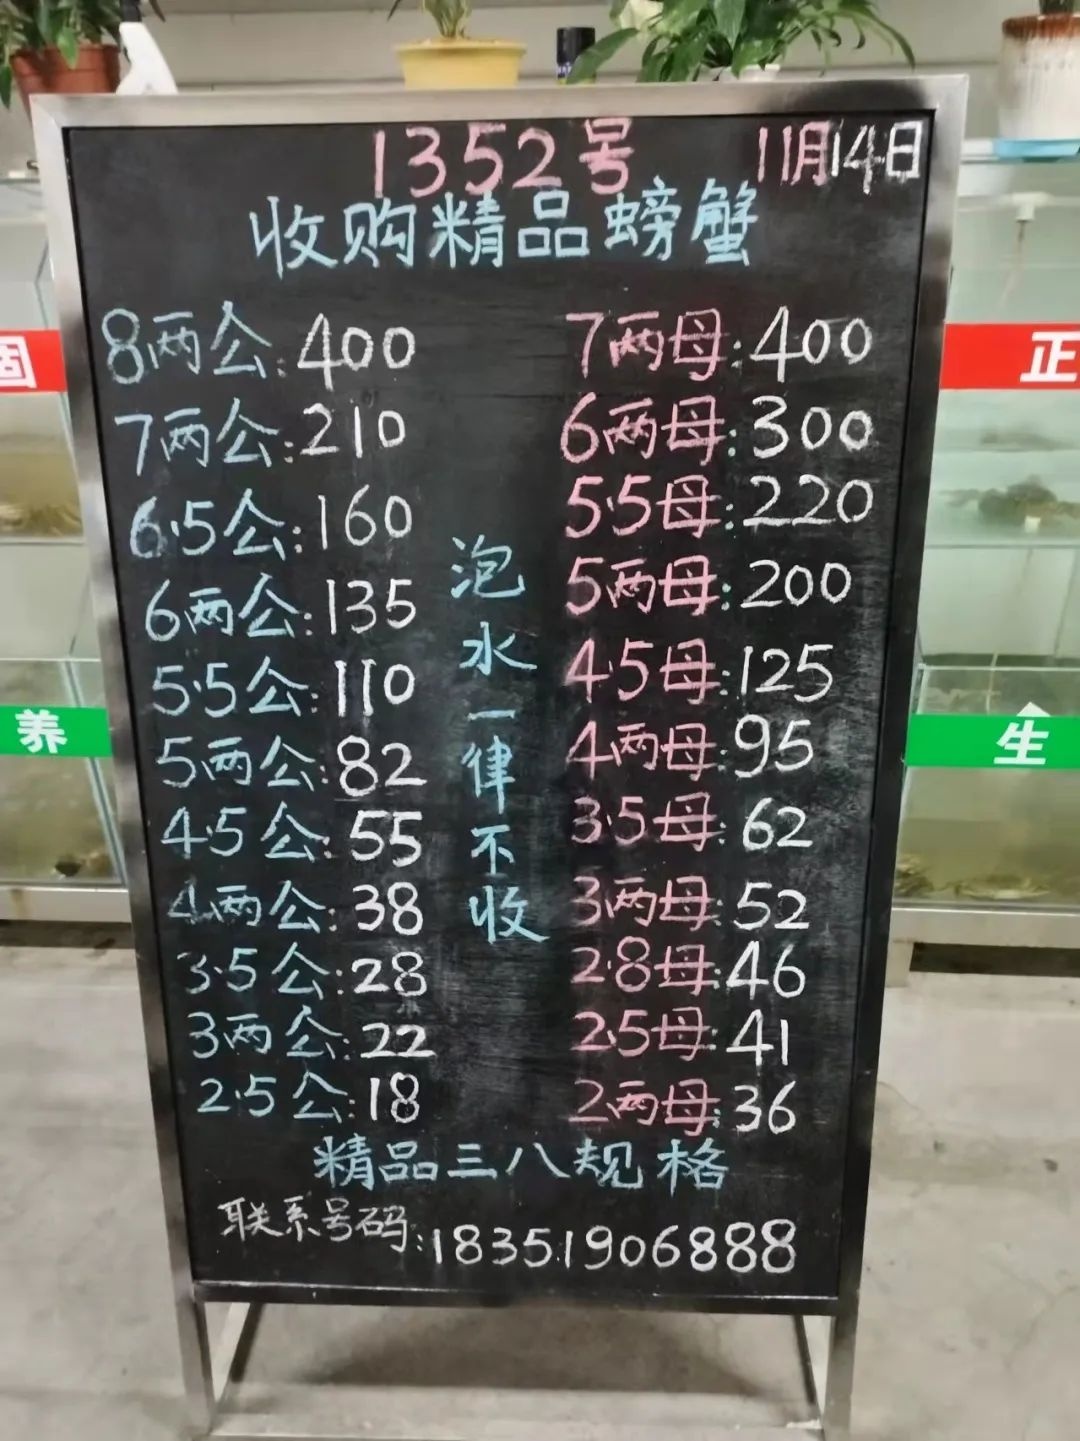 1352号 11月14日
收购精品螃蟹
8两公:400
7两公:210
6.5公:160
6两公:135
5.5公:110
5两公:82
4.5公:55
4两公:38
3.5公:28
3两公:22
2.5公:18
泡水一律不收
7两母:400
6两母:300
5.5母:220
5两母:200
4.5母:125
4两母:95
3.5母:62
3两母:52
2.8母:46
2.5母:41
2两母:36
精品三八规格
联系号码:18351906888
固
养
正
生